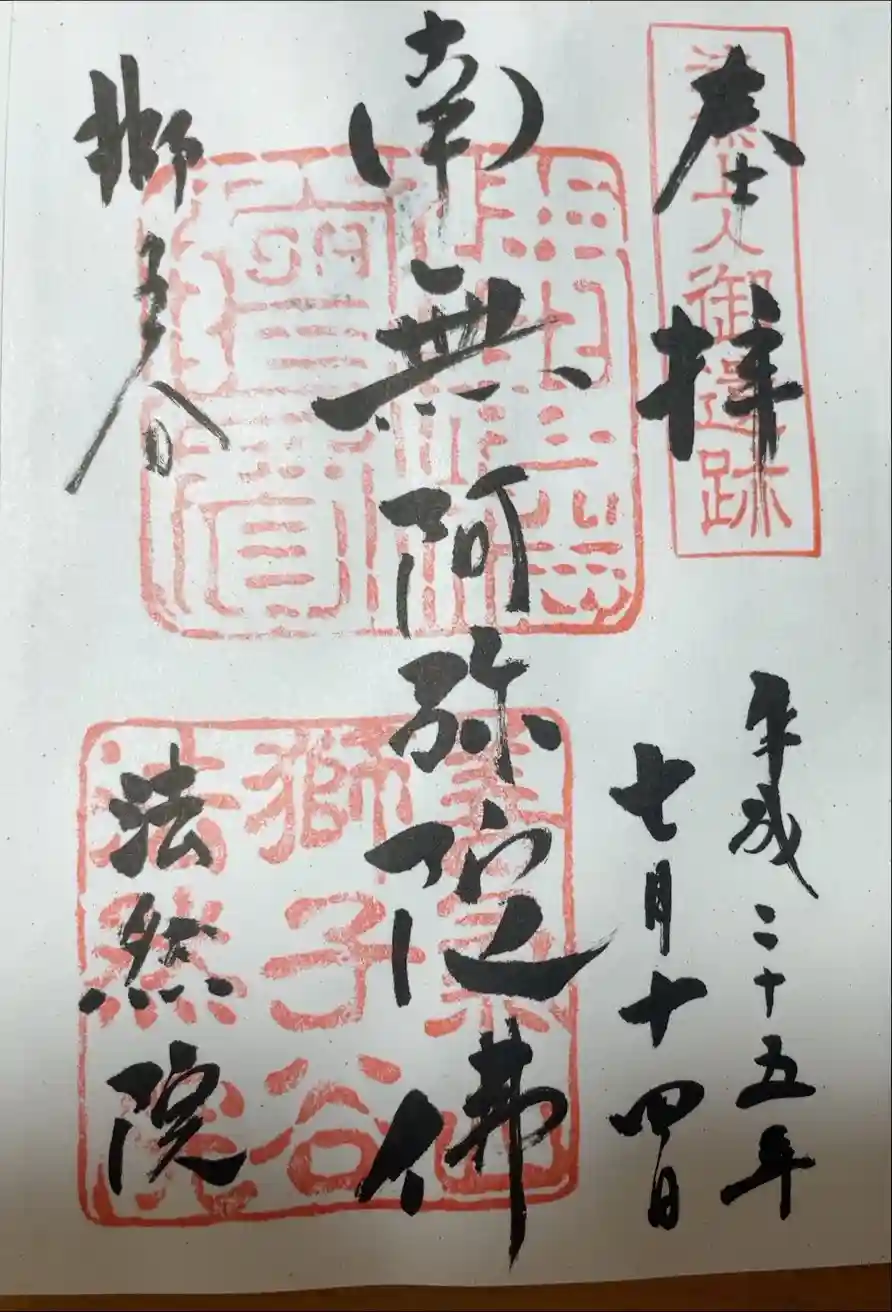 法然上人御遺跡
奉拝
平成二十五年
七月十四日
南無阿弥陀佛
獅子谷
法然院
善氣山
獅子谷
法然院